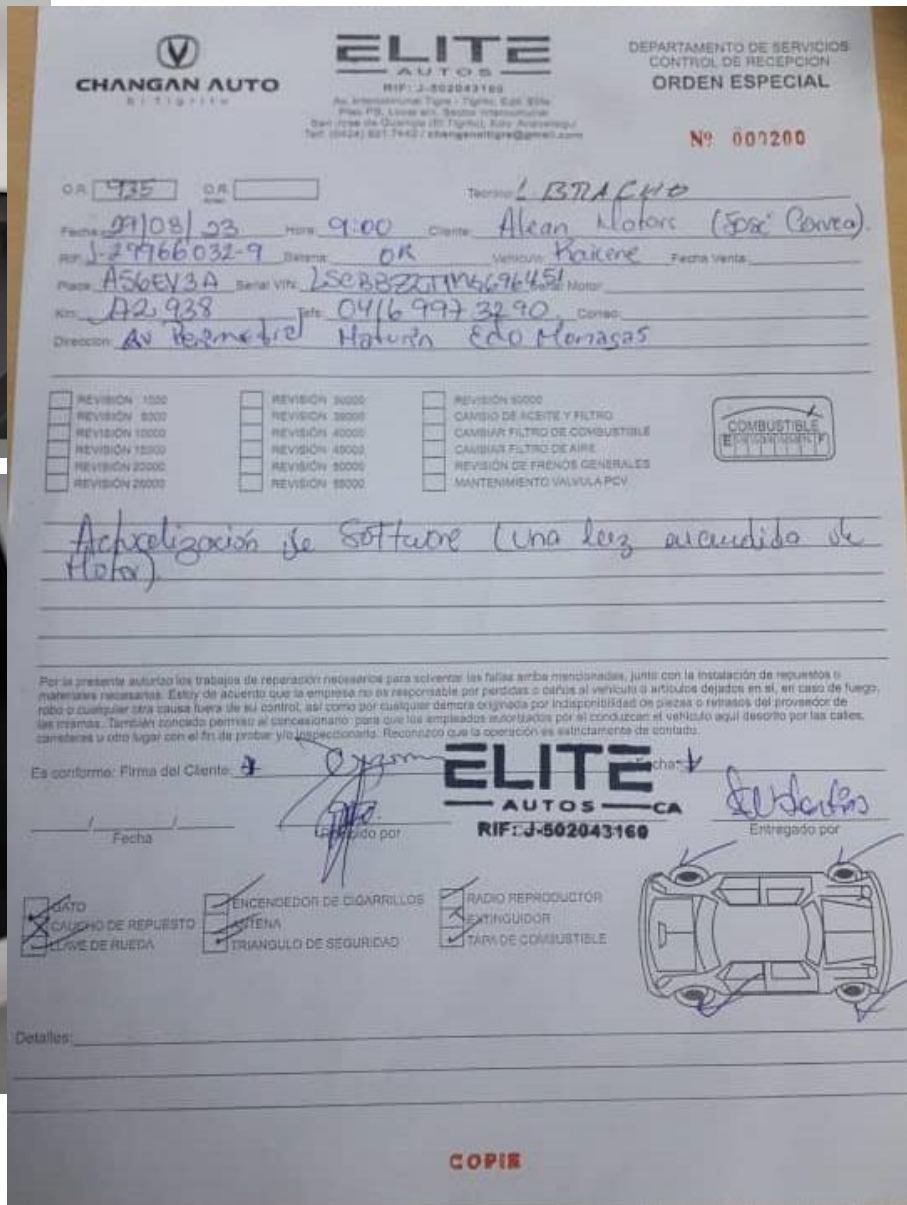 CHANGAN AUTO
El Tigrito
ELITE
AUTOS
RIF: J-502043160
Av. Intercomunal Tigre - Tigrito, Edif. Elite
Piso PB, Local s/n, Sector Intercomunal
San Jose de Guanipa (El Tigrito), Edo. Anzoategui
DEPARTAMENTO DE SERVICIOS
CONTROL DE RECEPCIÓN
ORDEN ESPECIAL
Nº 000200
O.R. 935 O.R. Técnico: L BRACHO
Fecha: 29/08/23 Hora: 9:00 Cliente: Alean Motors (José Correa).
RIF: J-29966032-9 Batería: OR Vehículo: Kaicene Fecha Venta:
Placa: A56EV3A Serial VIN: Motor:
Km: 42 938 Telf: 0416 997 3290 Correo:
Dirección: Av Maturín Edo Monagas
REVISIÓN 1000
REVISIÓN 5000
REVISIÓN 10000
REVISIÓN 15000
REVISIÓN 20000
REVISIÓN 25000
REVISIÓN 30000
REVISIÓN 35000
REVISIÓN 40000
REVISIÓN 45000
REVISIÓN 50000
REVISIÓN 55000
REVISIÓN 60000
CAMBIO DE ACEITE Y FILTRO
CAMBIAR FILTRO DE COMBUSTIBLE
CAMBIAR FILTRO DE AIRE
REVISIÓN DE FRENOS GENERALES
MANTENIMIENTO VALVULA PCV
COMBUSTIBLE
E F
Actualización de Software (una luz encendida de
Motor).
Por la presente autorizo los trabajos de reparación necesarios para solventar las fallas arriba mencionadas, junto con la instalación de repuestos o
materiales necesarios. Estoy de acuerdo que la empresa no es responsable por perdidas o daños al vehículo o artículos dejados en el, en caso de fuego,
robo o cualquier otra causa fuera de su control, así como por cualquier demora originada por indisponibilidad de piezas o retrasos del proveedor de
las mismas. También concedo permiso al concesionario para que los empleados autorizados por el conduzcan el vehículo aquí descrito por las calles,
carreteras u otro lugar con el fin de probar y/o inspeccionarlo. Reconozco que la operación es estrictamente de contado.
Es conforme: Firma del Cliente: Fecha:
ELITE
AUTOS CA
RIF: J-502043160
Fecha
Recibido por
Entregado por
GATO
CAUCHO DE REPUESTO
LLAVE DE RUEDA
ENCENDEDOR DE CIGARRILLOS
ANTENA
TRIANGULO DE SEGURIDAD
RADIO REPRODUCTOR
EXTINGUIDOR
TAPA DE COMBUSTIBLE
Detalles:
COPIE